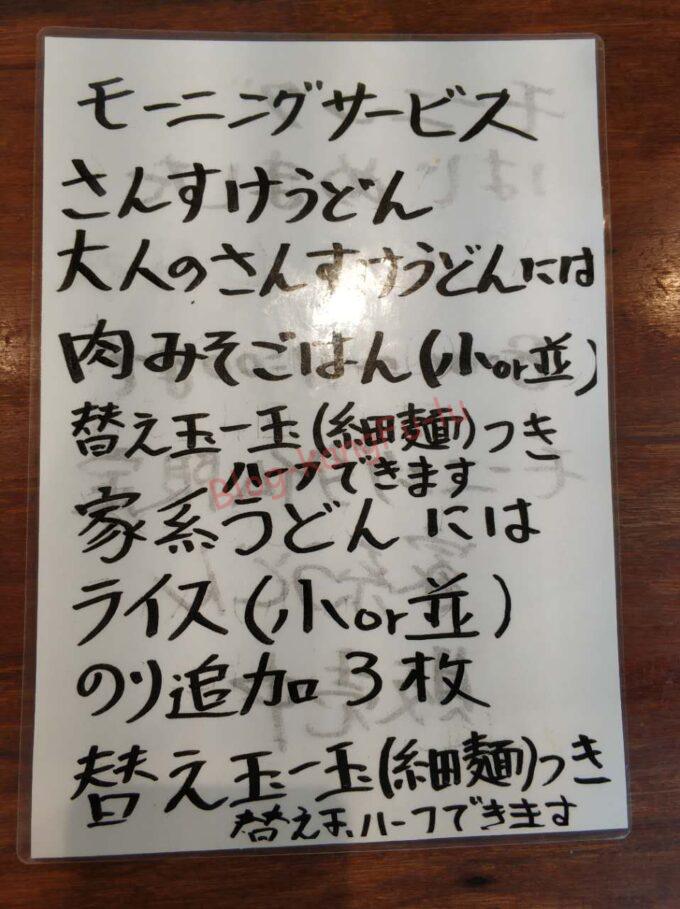 モーニングサービス
さんすけうどん
大人のさんすけうどんには
肉みそごはん(小or並)
替え玉一玉(細麺)つき
ハーフできます
家系うどんには
ライス(小or並)
のり追加3枚
替え玉一玉(細麺)つき
替え玉ハーフできます